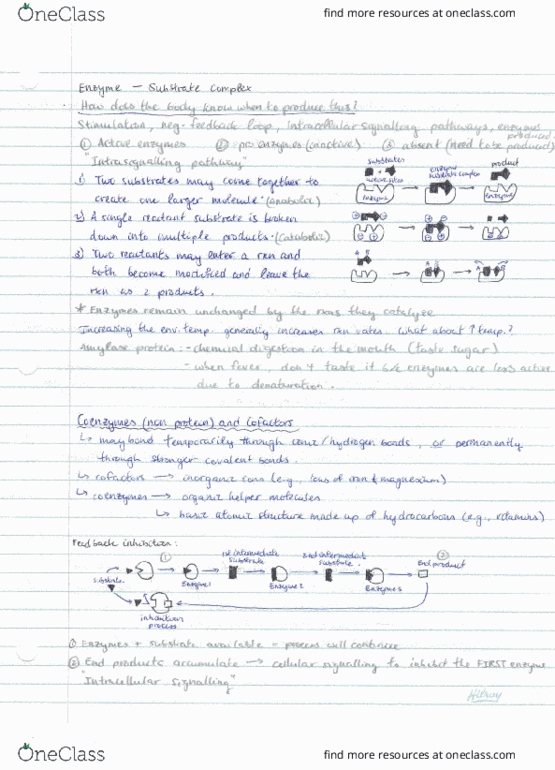 OneClass
find more resources at oneclass.com
Enzyme — Substrate Complex
How does the body know when to produce this?
Stimulation, neg-feedback loop, intracellular signalling pathways, enzyme
produced.
① Active enzymes ② pro enzymes (inactive) ③ absent (need to be produced)
"Intrasignalling pathway"
substrates
product
active sites
enzyme
enzyme substrate complex
enzyme
1) Two substrates may come together to
create one larger molecule. (anabolic)
2) A single reactant substrate is broken
down into multiple products. (Catabolic)
3) Two reactants may enter a rxn and
both become modified and leave the
rxn as 2 products.
* Enzymes remain unchanged by the rxns they catalyze
Increasing the env. temp. generally increases rxn rates. What about ↑ temp.?
Amylase protein: - chemical digestion in the mouth (taste sugar)
- when fever, don't taste it b/c enzymes are less active
due to denaturation.
Coenzymes (non protein) and Cofactors
↳ may bond temporarily through ionic/hydrogen bonds, or permanently
through stronger covalent bonds.
↳ cofactors → inorganic ions (e.g., ions of iron & magnesium)
↳ coenzymes → organic helper molecules
↳ basic atomic structure made up of hydrocarbons (e.g., vitamins)
Feedback inhibition:
①
1st intermediate
substrate
2nd intermediate
substrate.
②
End product
substrate
Enzyme 1
Enzyme 2
Enzyme 3
inhibition
process
① Enzymes + substrate available = process will continue
② End products accumulate → cellular signalling to inhibit the FIRST enzyme
"Intracellular signalling"
OneClass
find more resources at oneclass.com